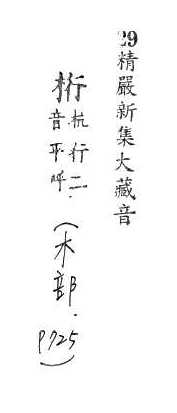 29精嚴新集大藏音
桁杭行二
音平呼.
(木部.
P725)